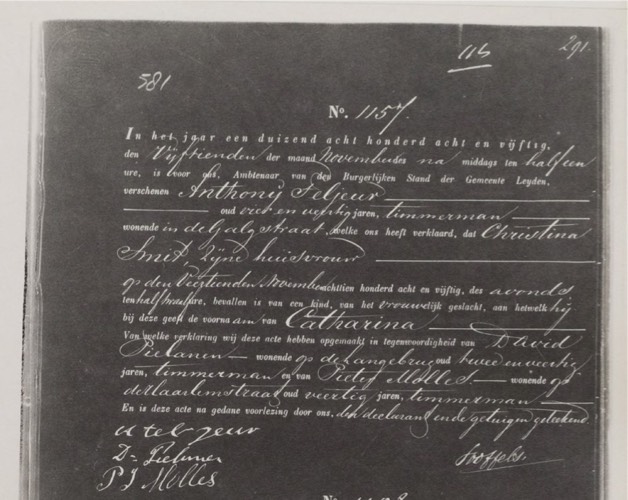 116
291
581
No. 1157.
In het jaar een duizend acht honderd acht en vijftig,
den Vijftienden der maand November des na middags ten half een
ure, is voor ons, Ambtenaar van den Burgerlijken Stand der Gemeente Leyden,
verschenen Anthonij Teljeur
oud vier en veertig jaren, timmerman
wonende in de Galgstraat, welke ons heeft verklaard, dat Christina
Smit Zijne huisvrouw
op den Veertienden November achttien honderd acht en vijftig, des avonds
ten half twaalf ure, bevallen is van een kind, van het vrouwelijk geslacht, aan hetwelk hij
bij deze geeft de voornaam van Catharina
Van welke verklaring wij deze acte hebben opgemaakt in tegenwoordigheid van David
wonende op de Langebrug oud twee en veertig
jaren, timmerman en van Pieter Molles wonende op
de Haarlemstraat oud veertig jaren, timmerman
En is deze acte na gedane voorlezing door ons, den declarant en de getuigen geteekend.
A teljeur
D
P J Molles
Stoffels.